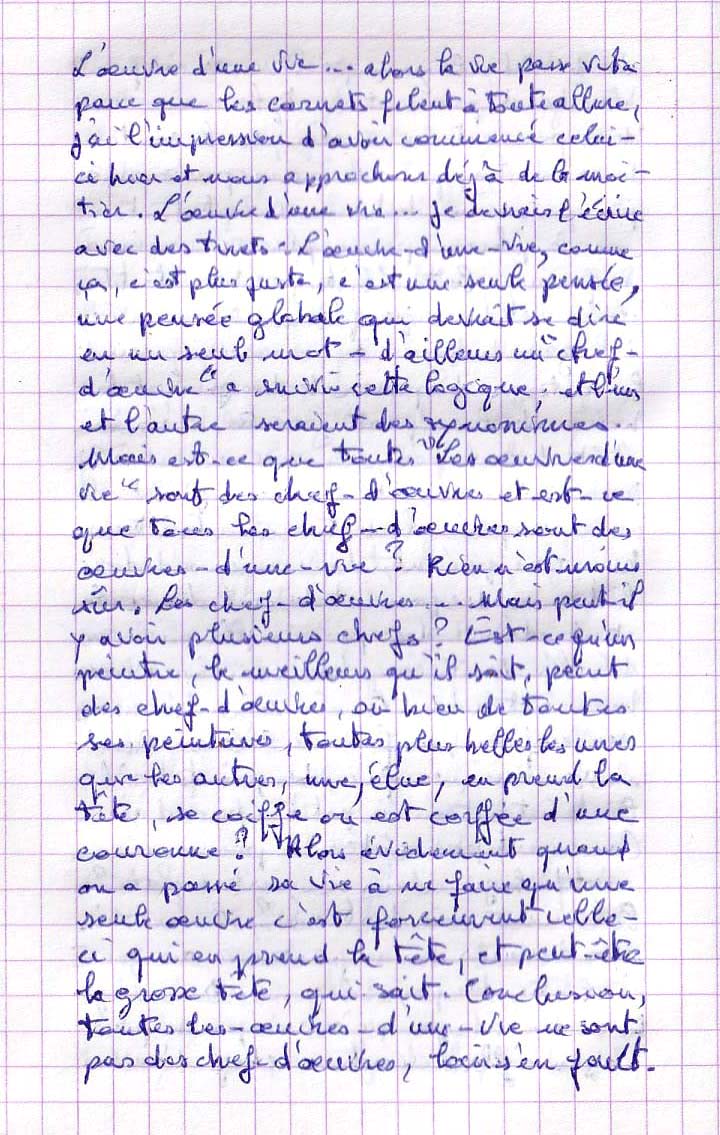 L'œuvre d'une vie... alors la vie passe vite
parce que les carnets filent à toute allure,
j'ai l'impression d'avoir commencé celui-
ci hier et nous approchons déjà de la moi-
tier. L'œuvre d'une vie... je devrais l'écrire
avec des tirets : L'œuvre-d'une-vie, comme
ça, c'est plus juste, c'est une seule pensée,
une pensée globale qui devrait se dire
en un seul mot - d'ailleurs un "chef-
d'œuvre" a suivi cette logique, et l'un
et l'autre seraient des synonimes.
Mais est-ce que toutes "les œuvres d'une
vie" sont des chef-d'œuvres et est-ce
que tous les chef-d'œuvres sont des
œuvres-d'une-vie ? Rien n'est moins
sûr. Les chef-d'œuvres... Mais peut il
y avoir plusieurs chefs ? Est-ce qu'un
peintre, le meilleurs qu'il soit, peint
des chef-d'œuvres, où bien de toutes
ses peintures, toutes plus belles les unes
que les autres, une, élue, en prend la
tête, se coiffe ou est coiffée d'une
couronne ? Alors évidemment quand
on a passé sa vie à ne faire qu'une
seule œuvre c'est forcément celle-
ci qui en prend la tête, et peut-être
la grosse tête, qui sait. Conclusion,
toutes les-œuvres-d'une-vie ne sont
pas des chef-d'œuvres, loin s'en fault.